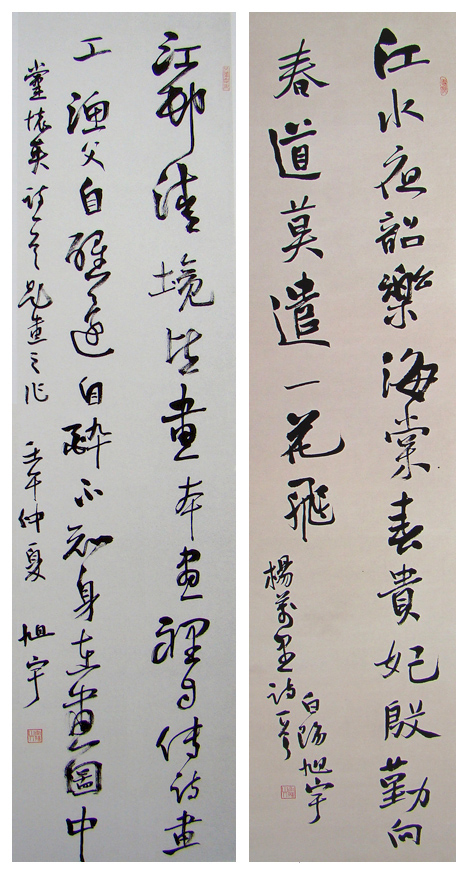 江水夜韶樂海棠春貴妃殷勤向
春道莫遣一花飛
楊萬里詩一首
白陽旭宇
江邨清境皆畫本畫裡更傳詩畫
工漁父自醒還自醉不知身在畫圖中
黨懷英詩一首題畫之作 壬午仲夏 旭宇